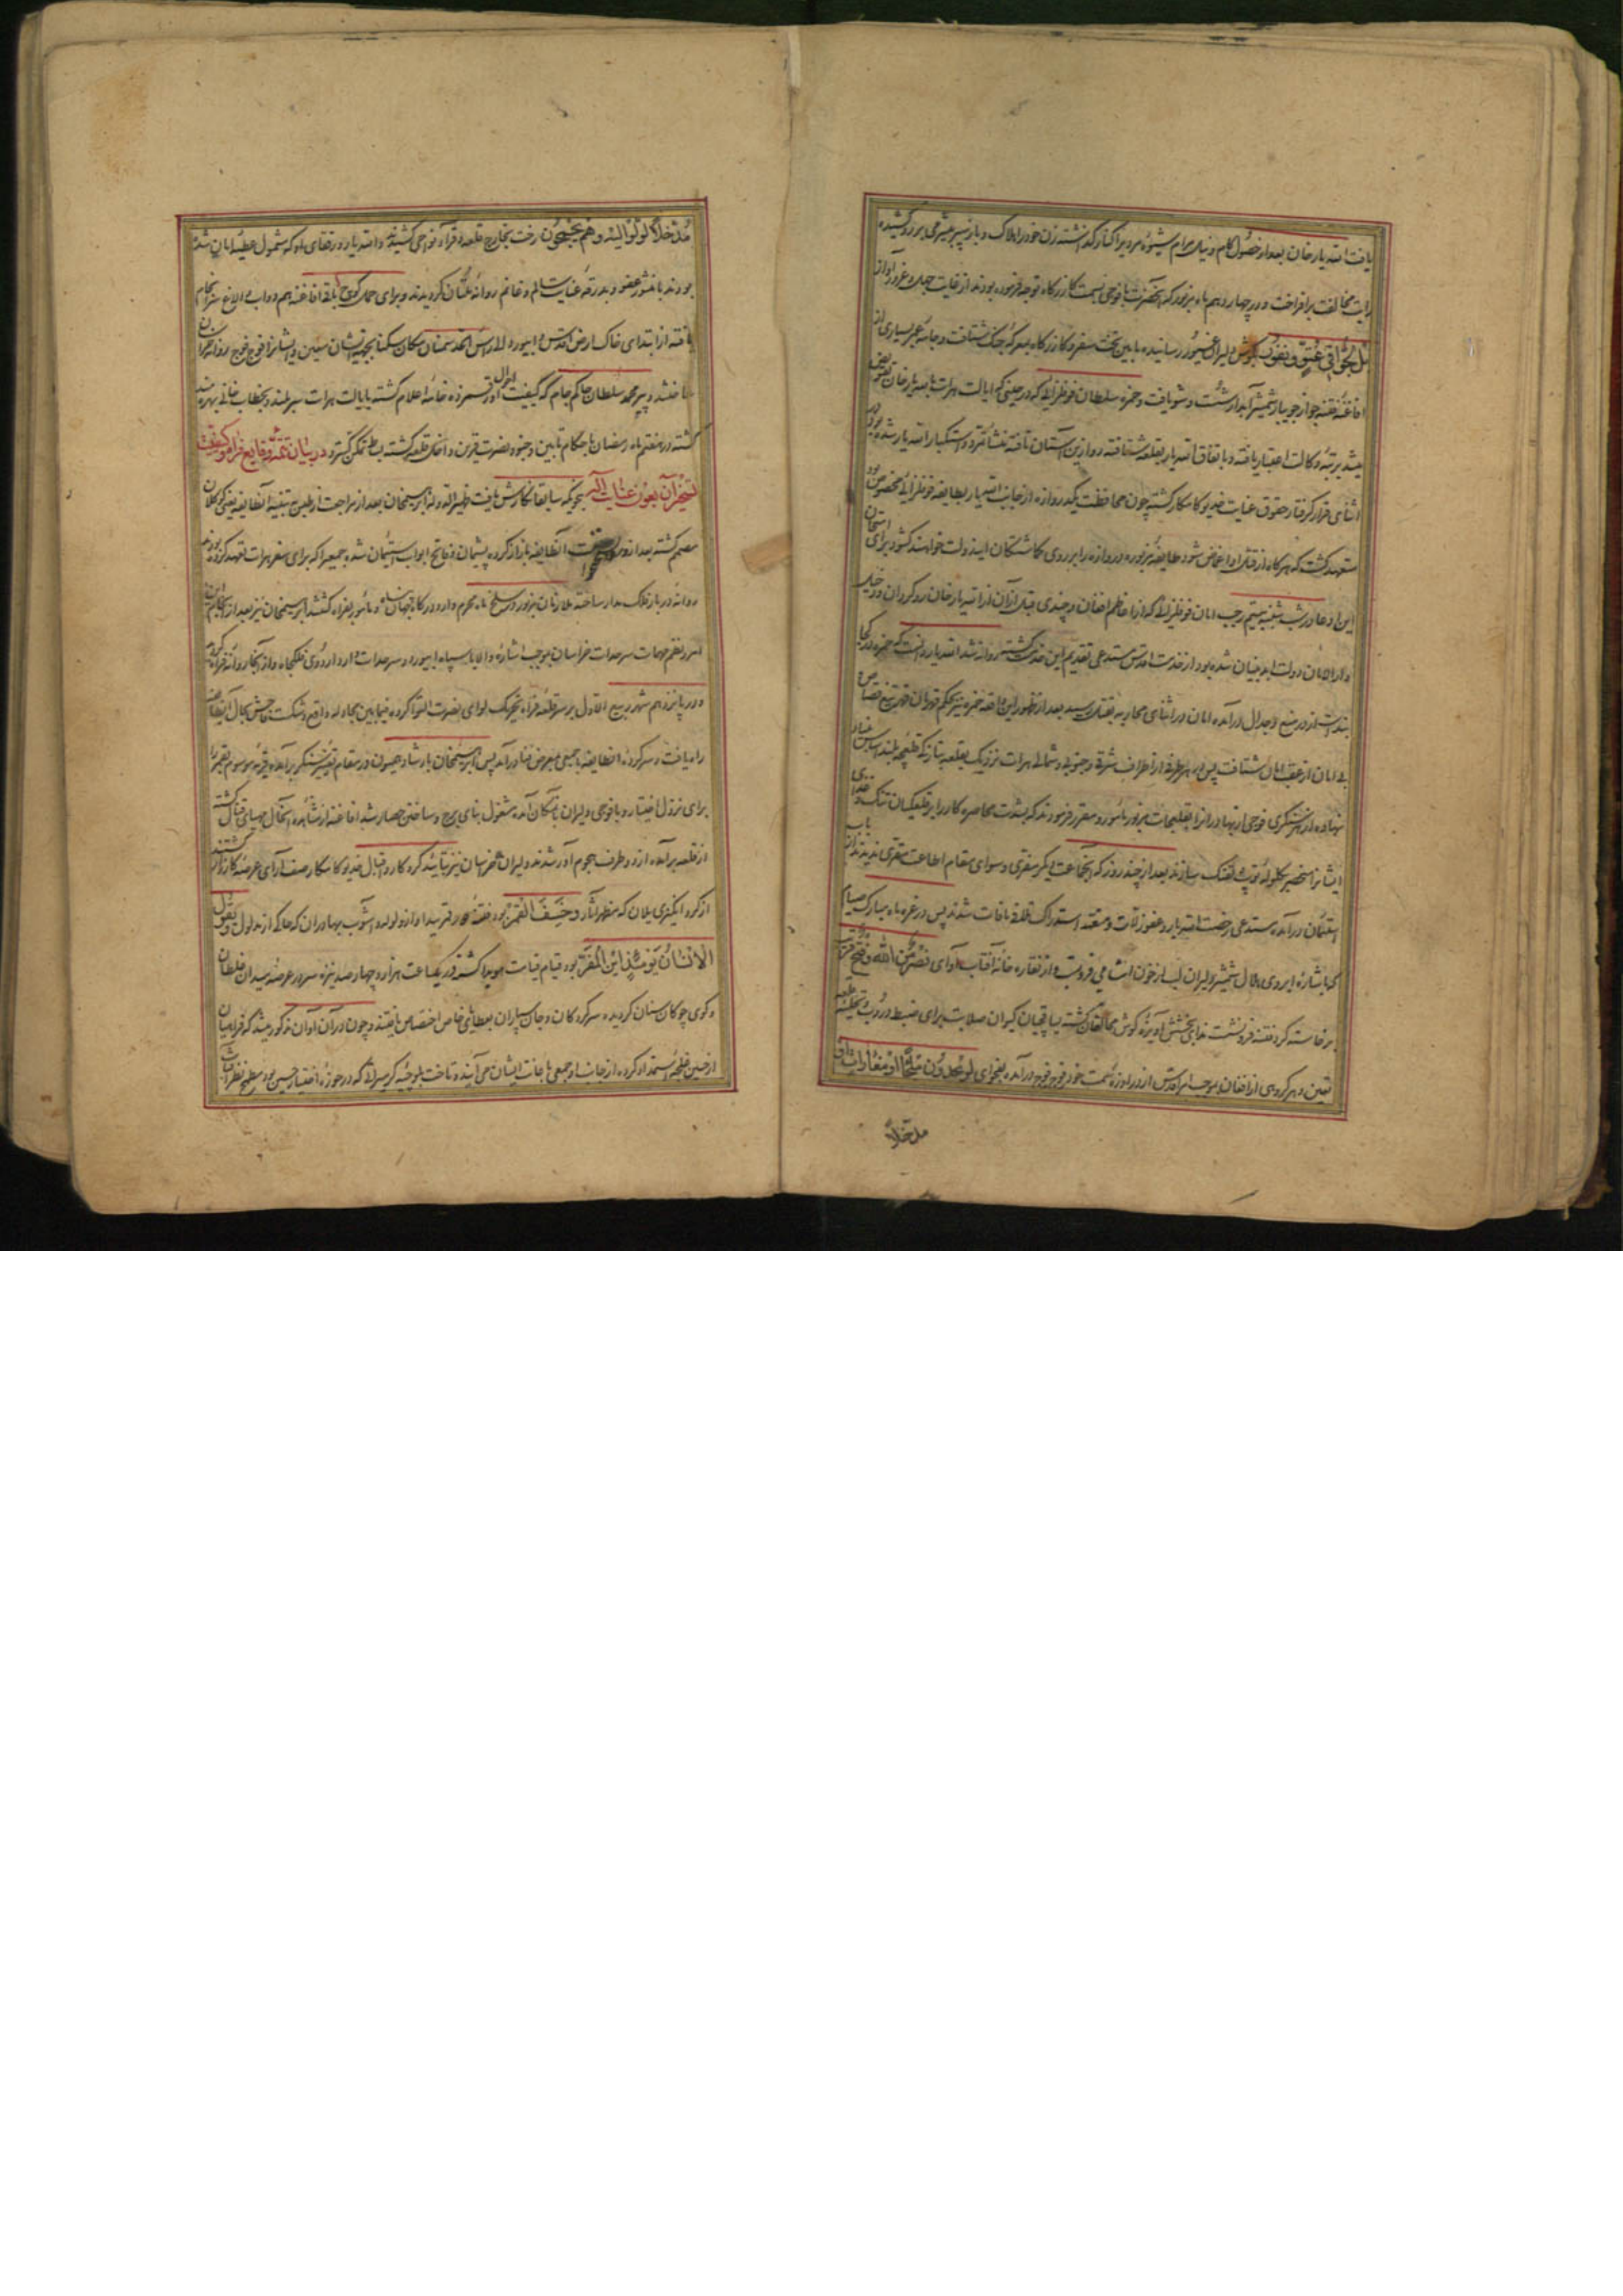 یافت الله یار خان بعد از حصول کام و نیل مرام شیوهٔ مردی را کنار گذاشته زن خود را هلاک و باز سپر بیشرمی بر رو کشیده
رایت مخالفت برافراخت و در چهاردهم ماه مزبور که آنحضرت با فوجی بسمت کازرگاه توجه فرموده بودند از غایت جهل و غرور آواز
بل لجوا فی عتو و نفور بگوش دلیران غیور رسانیده مابین تخت سفر و کازرگاه بمعرکهٔ جنک شتافت و جامهٔ عمر بسیاری از
افاغنهٔ فتنه جو از جویبار شمشیر آبدار شست و شو یافت و حمزه سلطان فوفلزائی که در حینی که ایالت هرات به الله یار خان تفویض
میشد برتبهٔ وکالت اعتبار یافته و باتفاق الله یار بقلعه شتافته رو ازین آستان تافته منشأ تمرد و استکبار الله یار شده بود در
اثنای فرار گرفتار حقوق عنایت خدیو کامکار گشته چون محافظت یکدروازه از جانب الله یار بطایفهٔ فوفلزائی مخصوص بود
متعهد گشت که هرگاه از قتل او اغماض شود طایفهٔ مزبوره دروازه را بر روی گماشتگان ایندولت خواهند گشود برای امتحان
این ادعا در شب شنبه بیستم رجب امان فوفلزائی که از اعاظم افغان و چندی قبل از آن از الله یار خان روگردان و دخیل
دار الامان دولت ابد بنیان شده بود از خدمت اقدس مستدعی تقدیم این خدمت گشته روانه شد الله یار دانست که حمزه در کجا
بتدارت از در منع و جدال درآمده امان در اثنای محاربه بقتل رسید بعد از ظهور این واقعه حمزه نیز بحکم قهرمان قهر بتیغ قصاص
بی امان از عقب امان شتافت پس در هر طرف از اطراف شرقی و جنوبی و شمالی هرات نزدیک بقلعه بنا نزدیک قلیچه بلند اساس بنیاد
نهاده از هر لشکری فوجی از بهادران را بقلیجات مزبور مامور و مقرر فرمودند که بشدت محاصره کار را بر قلعگیان تنک و
ایشانرا نخجیر گلولهٔ توپ و تفنک سازند بعد از چند روز که آنجماعت دیگر مفری و سوای مقام اطاعت مقری ندیدند از باب
استیمان درآمده مستدعی رخصت الله یار و عفو زلات و متعهد استدراک تلافی مافات شدند پس در غرهٔ ماه مبارک صیام
که باشارهٔ ابروی هلال شمشیر دلیران لب از خون آشامی فرو بست و از نقاره خانهٔ آفتاب آوای نصر من الله و فتح قریب
برخاسته گرد فتنه فرونشست ندای بخشش آویزهٔ گوش مخالفان گشته یساقچیان کیوان صلابت برای ضبط دروب و تخلیهٔ قلعه
تعیین و هر گروهی از افغان بموجب امر اقدس از دروازهٔ سمت خود فوج فوج درآمده بفحوای لو یجدون ملجأ او مغارات او
مدخلا
مدخلا لولوا الیه و هم یجمحون رخت بخارج قلعه و قراء و نواحی کشیدند و الله یار و رفقای او که مشمول عطیهٔ امان شده
بودند با منشور عفو و بدرقهٔ عنایت سالم و غانم روانهٔ ملتان گردیدند و برای حمل کوچ باقی افاغنه هم دواب الاغ سرانجام
یافته از ابتدای خاک ارض اقدس و ابیورد الی راس الحد سمنان مکان سکنا بجهة ایشان معین و ایشانرا فوج فوج روانهٔ خراسان
ساختند و پیر محمد سلطان حاکم جام که کیفیت احوال او رقمزدهٔ خامهٔ اعلام گشته بایالت هرات سربلند و بخطاب خانی بهره مند
گشته در هفتم ماه رمضان با حکام تابین و جنود نصرت قرین داخل قلعه گشته بساط تمکن گسترد در بیان تتمهٔ وقایع فراه و کیفیت
تسخیر آن بعون عنایات اله بنحویکه سابقا نگارش یافت ظهیرالدوله ابراهیمخان بعد از مراجعت از طبس بتنبیه آنطایفه یعنی کوکلان
مصمم گشته بعد از و آنطایفه باز از کرده پشیمان و فاتح ابواب استیمان شده جمعیرا که برای سفر هرات تعهد کرده بودند
روانه دربار فلک مدار ساخته ملازمان مزبور در سلخ ماه محرم وارد درگاه جهان پناه و مامور بفراه گشتند ابراهیمخان نیز بعد از انجام این
امر و نظم مهمات سرحدات خراسان بموجب اشارهٔ والا با سپاه ابیورد و سرحدات وارد اردوی فلکجاه و از آنجا روانهٔ فراه گردید
و در پانزدهم شهر ربیع الاول بر سر قلعهٔ فراه تحریک لوای نصرت التوا کرده فیمابین مجادله واقع و شکست فاحش بحال آنطایفه
راه یافت و سرکردهٔ آنطایفه با جمعی بمعرض فنا درآمد پس ابراهیمخان با رشادت جیحون در مقام تغییر سنگر برآمده قریهٔ موسوم بقمریه
برای نزول اختیار و با فوجی دلیران بآنمکان آمده مشغول بنای برج و ساختن حصار شد افاغنه از مشاهدهٔ اینحال مهیای قتال گشته
از قلعه برآمده از دو طرف هجوم آور شدند و دلیران خراسان نیز بتایید کردگار و اقبال خدیو کامکار صف آرای عرصهٔ کارزار گشتند
از گرد انگیزی یلان که مظهر آثار و خسف القمر بود فتنهٔ دور قمر پیدا و از ولوله و آشوب بهادران که حاکی از مدلول یقول
الانسان یومئذ این المفر بود قیام قیامت هویدا گشته در یکساعت هزار و چهارصد نیزه سر در عرصهٔ میدان غلطان
و گوی چوگان سنان گردیده سرکردگان و جان سپاران بعطایای خاص اختصاص یافتند و چون در آن اوان مذکور میشد که فراهیان
از حسین غلجه استمداد کرده از جانب او جمعی باعانت ایشان می آیند و تاخت بلوچیه کرمسرائی که در حوزهٔ اختیار حسین بود مطمح نظر